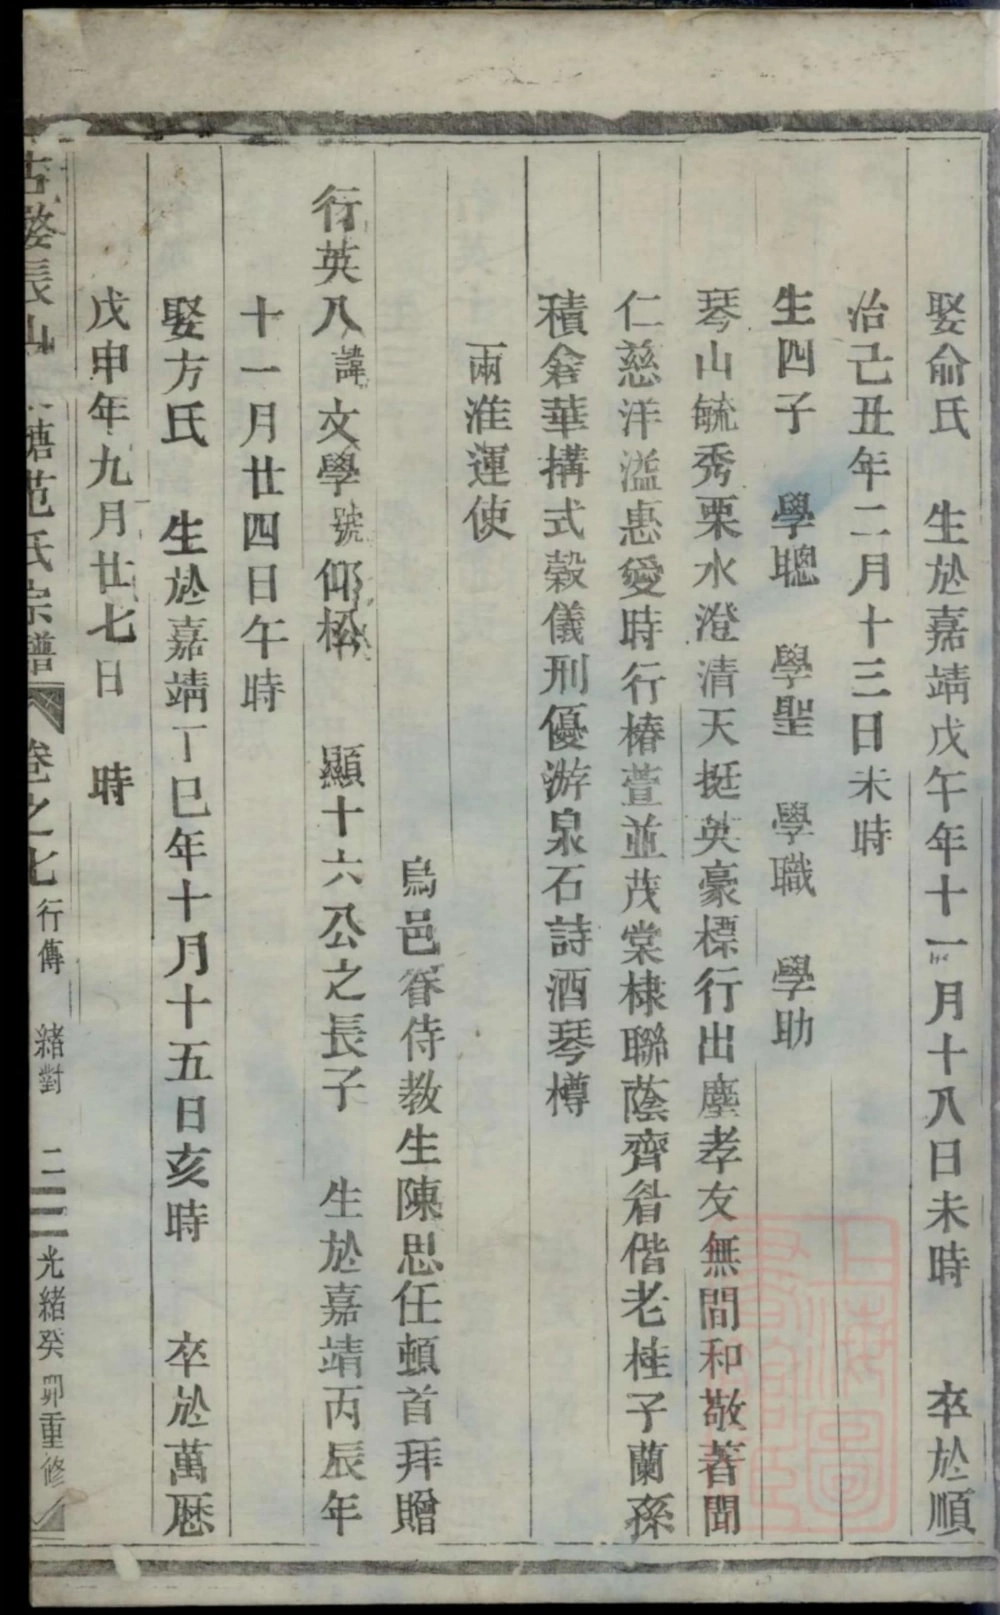 娶俞氏　生於嘉靖戊午年十一月十八日未時　卒於順
治己丑年二月十三日未時
生四子　學聰　學聖　學職　學助
琴山毓秀栗水澄清天挺英豪標行出塵孝友無間和敬著聞
仁慈洋溢惠愛時行椿萱並茂棠棣聯蔭齊眉偕老桂子蘭孫
積倉華搆式穀儀刑優游泉石詩酒琴樽
兩淮運使
烏邑眷侍教生陳思任頓首拜贈
行英八諱文學號仰松　顯十六公之長子　生於嘉靖丙辰年
十一月廿四日午時
娶方氏　生於嘉靖丁巳年十月十五日亥時　卒於萬厯
戊申年九月廿七日　時
古婺長山塘范氏宗譜　卷之七　行傳　緒對　二三　光緒癸卯重修